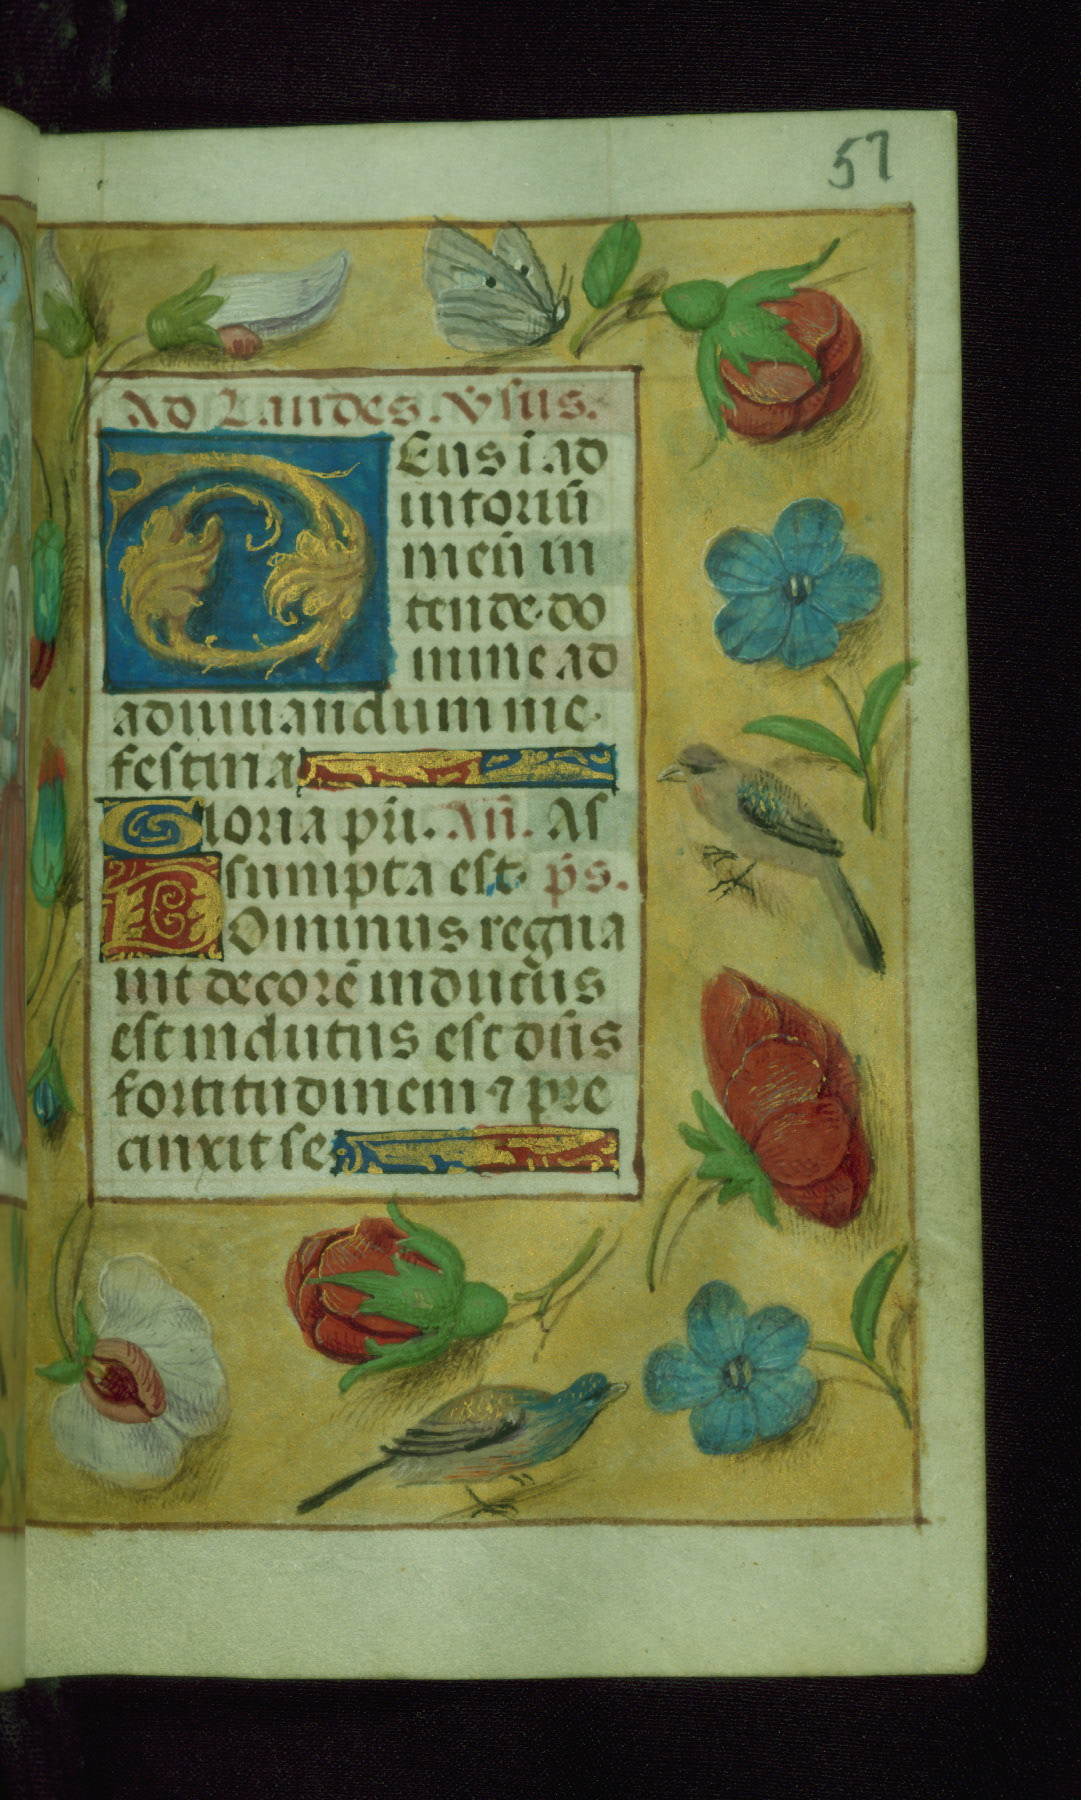 57
Ad Laudes. V̾sus.
Deus ī ad
iutoriū
meū in
tende. do
mine ad
adiuuandum me
festina
Gloria p̄ri. Añ. As
sumpta est. p̄s.
Dominus regna
uit decorē indutus
est indutus est dn̄s
fortitudinem ⁊ pre
cinxit se